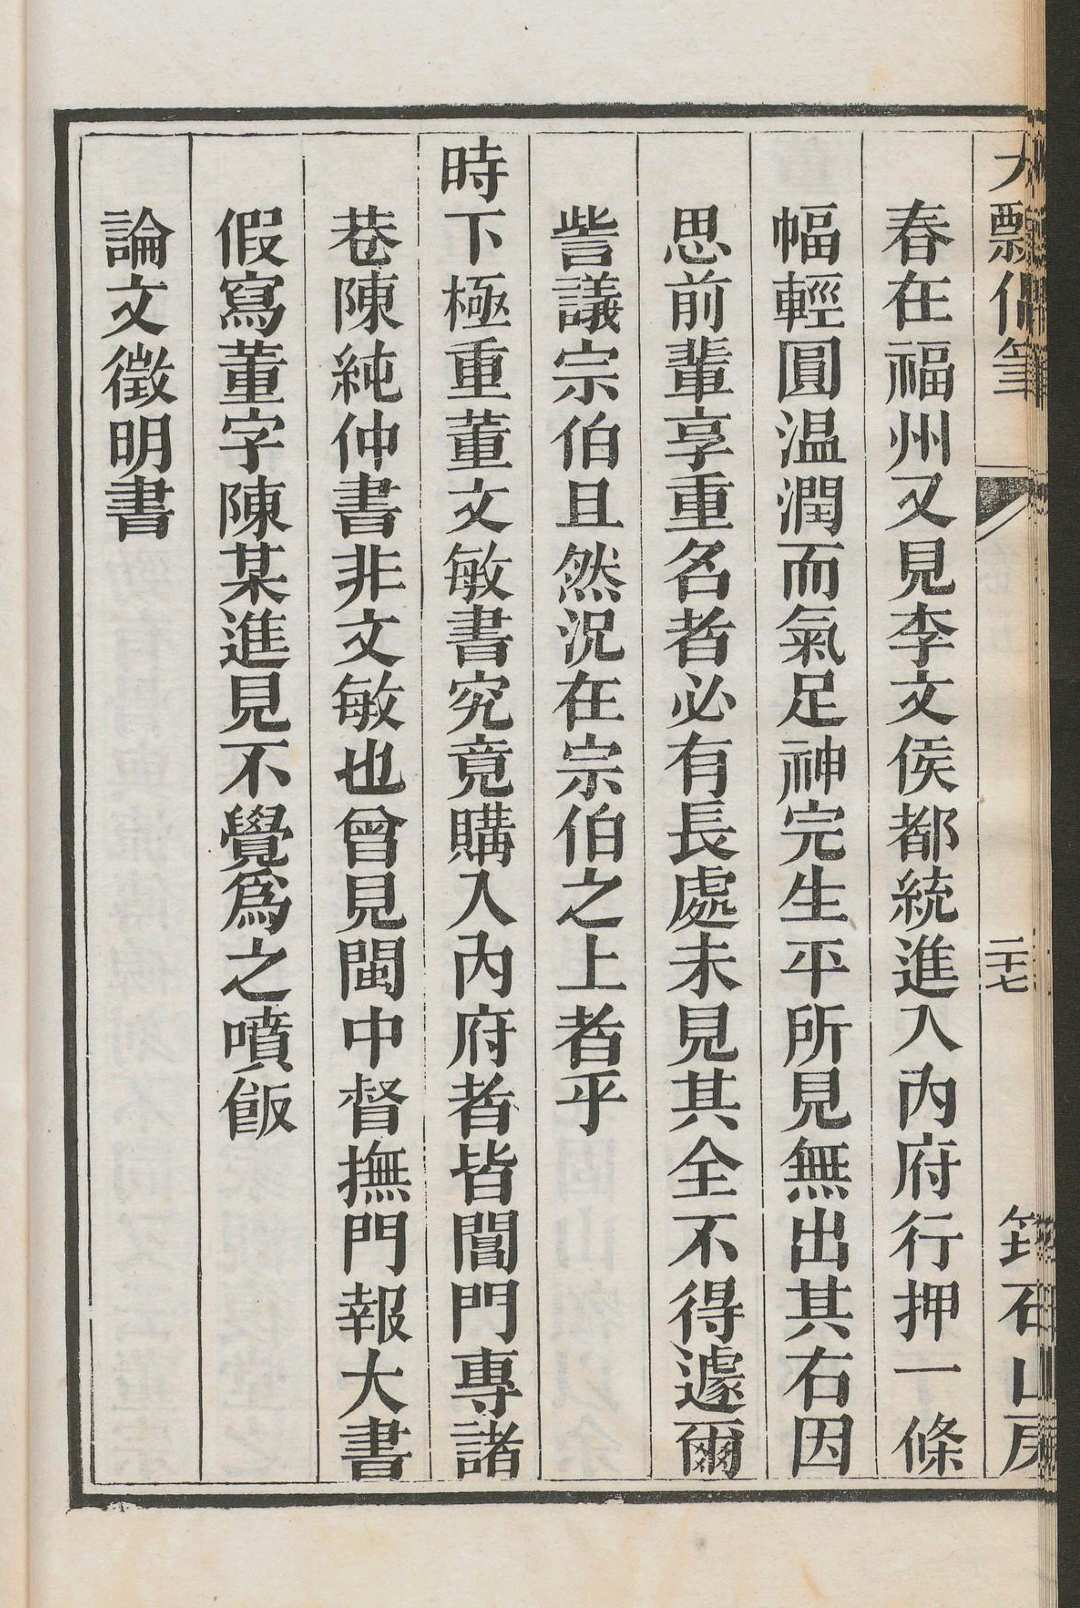 大瓢偶筆
二十七
筠石山房
春在福州又見李文侯都統進入內府行押一條
幅輕圓温潤而氣足神完生平所見無出其右因
思前輩享重名者必有長處未見其全不得遽爾
訾議宗伯且然況在宗伯之上者乎
時下極重董文敏書究竟購入內府者皆閶門專諸
巷陳純仲書非文敏也曾見閩中督撫門報大書
假寫董字陳某進見不覺爲之噴飯
論文徵明書